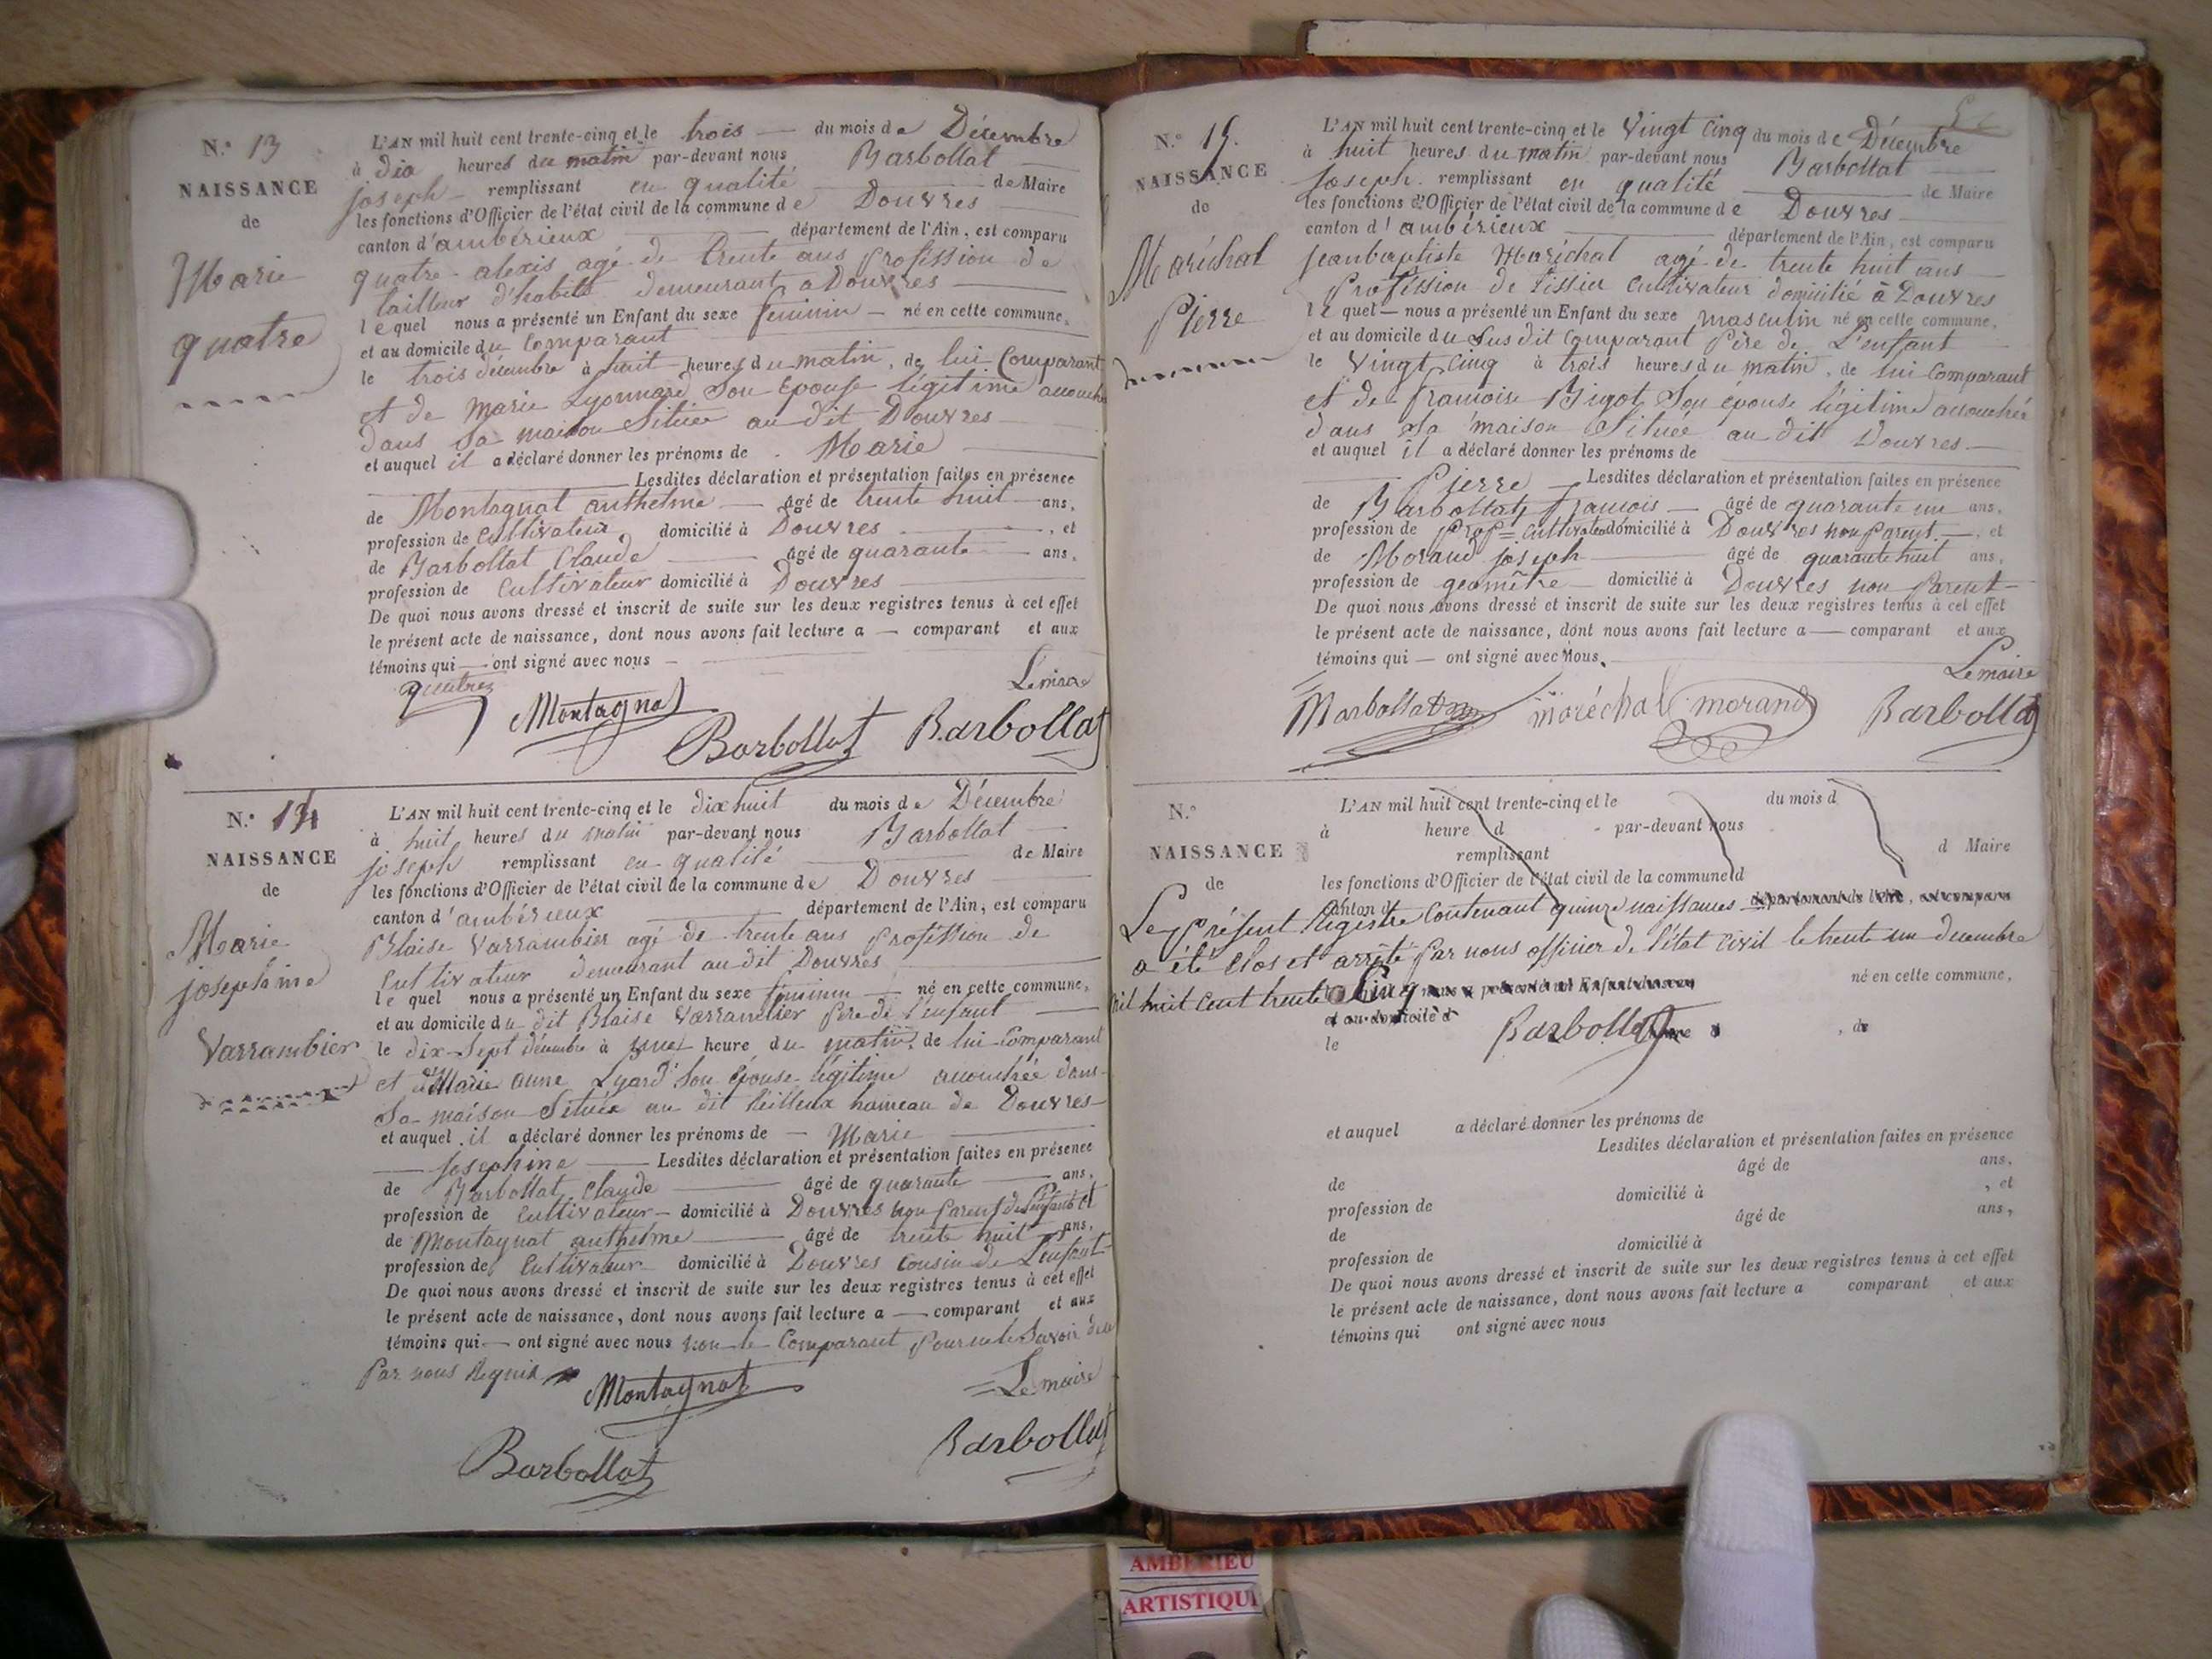 N.° 13
NAISSANCE
de
Marie
quatre
L'AN mil huit cent trente-cinq et le trois du mois de Décembre
à dix heures du matin par-devant nous Barbollat
joseph remplissant en qualité de Maire
les fonctions d'Officier de l'état civil de la commune de Douvres
canton d'ambérieux département de l'Ain, est comparu
quatre alexis agé de trente ans profession de
tailleur d'habits demeurant a Douvres
lequel nous a présenté un Enfant du sexe feminin né en cette commune,
et au domicile du Comparant
le trois décembre à huit heures du matin, de lui Comparant
et de Marie Lyonnard Son épouse légitime accouchée
dans sa maison Située au dit Douvres
et auquel il a déclaré donner les prénoms de Marie
Lesdites déclaration et présentation faites en présence
de Montagnat anthelme âgé de trente huit ans,
profession de Cultivateur domicilié à Douvres, et
de Barbollat Claude âgé de quarante ans,
profession de Cultivateur domicilié à Douvres
De quoi nous avons dressé et inscrit de suite sur les deux registres tenus à cet effet
le présent acte de naissance, dont nous avons fait lecture a comparant et aux
témoins qui ont signé avec nous
Le maire
quatrez
Montagnat
Barbollat
Barbollat
N.° 14
NAISSANCE
de
Marie
josephine
Varrambier
L'AN mil huit cent trente-cinq et le dix huit du mois de Décembre
à huit heures du matin par-devant nous Barbollat
joseph remplissant en qualité de Maire
les fonctions d'Officier de l'état civil de la commune de Douvres
canton d'ambérieux département de l'Ain, est comparu
Blaise Varrambier agé de trente ans profession de
Cultivateur demeurant au dit Douvres
lequel nous a présenté un Enfant du sexe féminin né en cette commune,
et au domicile du dit Blaise Varrambier père de l'enfant
le dix Sept décembre à une heure du matin, de lui Comparant
et de Marie anne Lyard Son épouse légitime accouchée dans
Sa maison Située au dit hameau de Douvres
et auquel il a déclaré donner les prénoms de Marie
Josephine Lesdites déclaration et présentation faites en présence
de Barbollat Claude âgé de quarante ans,
profession de Cultivateur domicilié à Douvres non parent de l'enfant et
de Montagnat anthelme âgé de trente huit ans,
profession de Cultivateur domicilié à Douvres cousin de L'enfant
De quoi nous avons dressé et inscrit de suite sur les deux registres tenus à cet effet
le présent acte de naissance, dont nous avons fait lecture a comparant et aux
témoins qui ont signé avec nous non le Comparant pour ne le Savoir de ce
par nous Requis
Montagnat
Le maire
Barbollat
Barbollat
N.° 15.
NAISSANCE
de
Maréchal
Pierre
L'AN mil huit cent trente-cinq et le Vingt cinq du mois de Décembre
à huit heures du matin par-devant nous Barbollat
joseph remplissant en qualité de Maire
les fonctions d'Officier de l'état civil de la commune de Douvres
canton d'ambérieux département de l'Ain, est comparu
jeanbaptiste Maréchal agé de trente huit ans
Profession de tissier Cultivateur domicilié à Douvres
lequel nous a présenté un Enfant du sexe masculin né en cette commune,
et au domicile du Susdit Comparant Père de L'enfant
le Vingt Cinq à trois heures du matin, de lui Comparant
et de francoise Bigot Son épouse légitime accouchée
dans Sa maison Située au dit Douvres
et auquel il a déclaré donner les prénoms de
Pierre Lesdites déclaration et présentation faites en présence
de Barbollat francois âgé de quarante un ans,
profession de Prop= Cultivateur domicilié à Douvres non parent, et
de Morand joseph âgé de quarante huit ans,
profession de geomêtre domicilié à Douvres non Parent
De quoi nous avons dressé et inscrit de suite sur les deux registres tenus à cet effet
le présent acte de naissance, dont nous avons fait lecture a comparant et aux
témoins qui ont signé avec Nous.
Le maire
Barbollat maréchal morand Barbollat
N.°
NAISSANCE
de
L'AN mil huit cent trente-cinq et le du mois d
à heure d par-devant nous
remplissant d Maire
les fonctions d'Officier de l'état civil de la commune d
canton d département de l'Ain, est comparu
Le présent Registre Contenant quinze naissances
a été clos et arrêté par nous officier de l'état civil le trente un decembre
mil huit cent trente Cinq
né en cette commune,
et au domicile d
Barbollat
le heure d , de
et auquel a déclaré donner les prénoms de
Lesdites déclaration et présentation faites en présence
de âgé de ans,
profession de domicilié à , et
de âgé de ans,
profession de domicilié à
De quoi nous avons dressé et inscrit de suite sur les deux registres tenus à cet effet
le présent acte de naissance, dont nous avons fait lecture a comparant et aux
témoins qui ont signé avec nous
AMBERIEU
ARTISTIQU